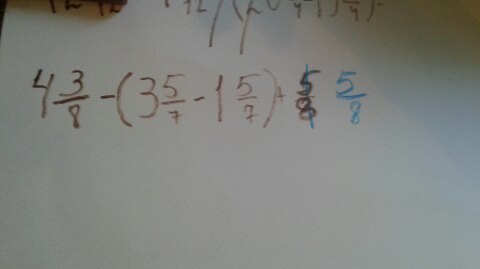 4 3/8 - (3 5/7 - 1 5/7) + 5/8 5/8